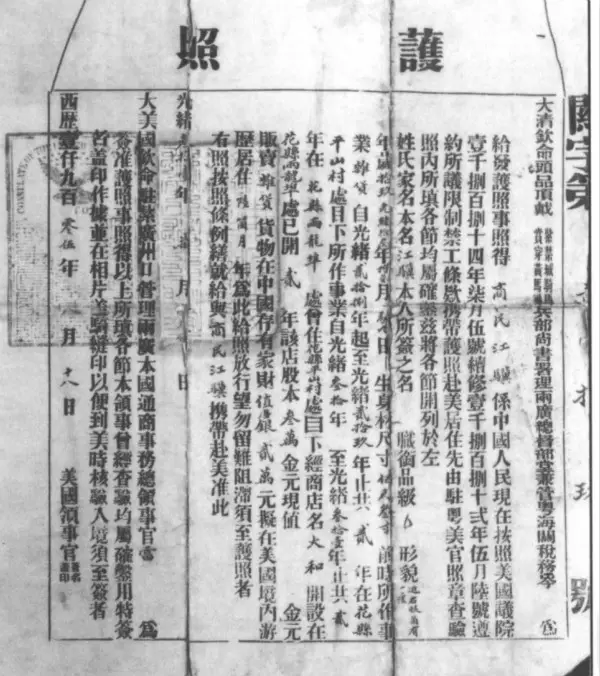 護照
關字第拾玖號
大清欽命頭品頂戴兵部尚書署理兩廣總督部堂兼管粵海關稅務岑 為
給發護照事照得 商民江驥 係中國人民現在按照美國議院
壹千捌百捌十四年柒月伍號續修壹千捌百捌十弍年伍月陸號遵
約所議限制禁工條款携帶護照赴美居住先由駐粵美官照章查驗
照內所填各節均屬確鑿茲將各節開列於左
姓氏家名本名江驥本人所簽之名 職銜品級 形貌
年歲 年 月 日 生身材尺寸 前時所作事
業 雜貨 自光緒貳拾捌年起至光緒貳拾玖年止共 貳 年在花縣
平山村處目下所作事業自光緒叁十年 至光緒叁拾壹年止共 貳
年在 花縣兩龍埠 處曾住花縣平山村處目下經商店名 大和 開設在
花縣兩龍埠處已開 貳 年該店股本 叁萬 金元現值 金元
販賣 雜貨 貨物在中國存有家財 值銀 貳萬 元擬在美國境內游
歷居在 陸個月 年爲此給照放行望勿留難阻滯須至護照者
有照按照條例繕就給與 商民江驥 携帶赴美准此
光緒 年 月 日
大美國欽命駐紮廣州口管理兩廣本國通商事務總領事官 為
簽准護照事照得以上所填各節本領事曾經查驗均屬確鑿用特簽
名蓋印作據並在相片蓋騎縫印以便到美時核驗入境須至簽者
西歷壹仟九百 零伍 年 月 十八 日 美國領事官 簽名蓋印